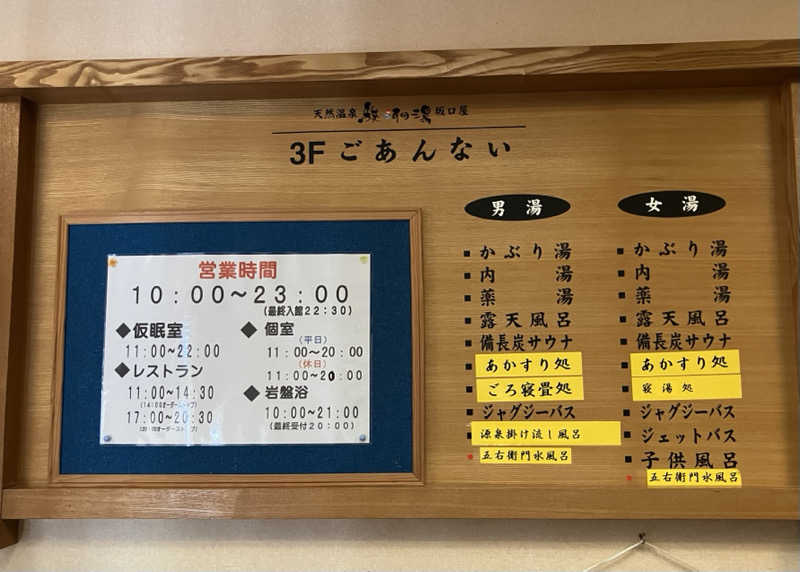 天然温泉 駿河の湯 坂口屋
3F ごあんない
営業時間
10:00～23:00
(最終入館22:30)
◆仮眠室
11:00～22:00
◆レストラン
11:00～14:30
(14:00オーダーストップ)
17:00～20:30
◆個室
(平日)
11:00～20:00
(休日)
11:00～20:00
◆岩盤浴
10:00～21:00
(最終受付20:00)
男湯
■かぶり湯
■内湯
■薬湯
■露天風呂
■備長炭サウナ
あかすり処
ごろ寝畳処
■ジャグジーバス
源泉掛け流し風呂
五右衛門水風呂
女湯
■かぶり湯
■内湯
■薬湯
■露天風呂
■備長炭サウナ
■あかすり処
■寝湯処
■ジャグジーバス
■ジェットバス
■子供風呂
五右衛門水風呂